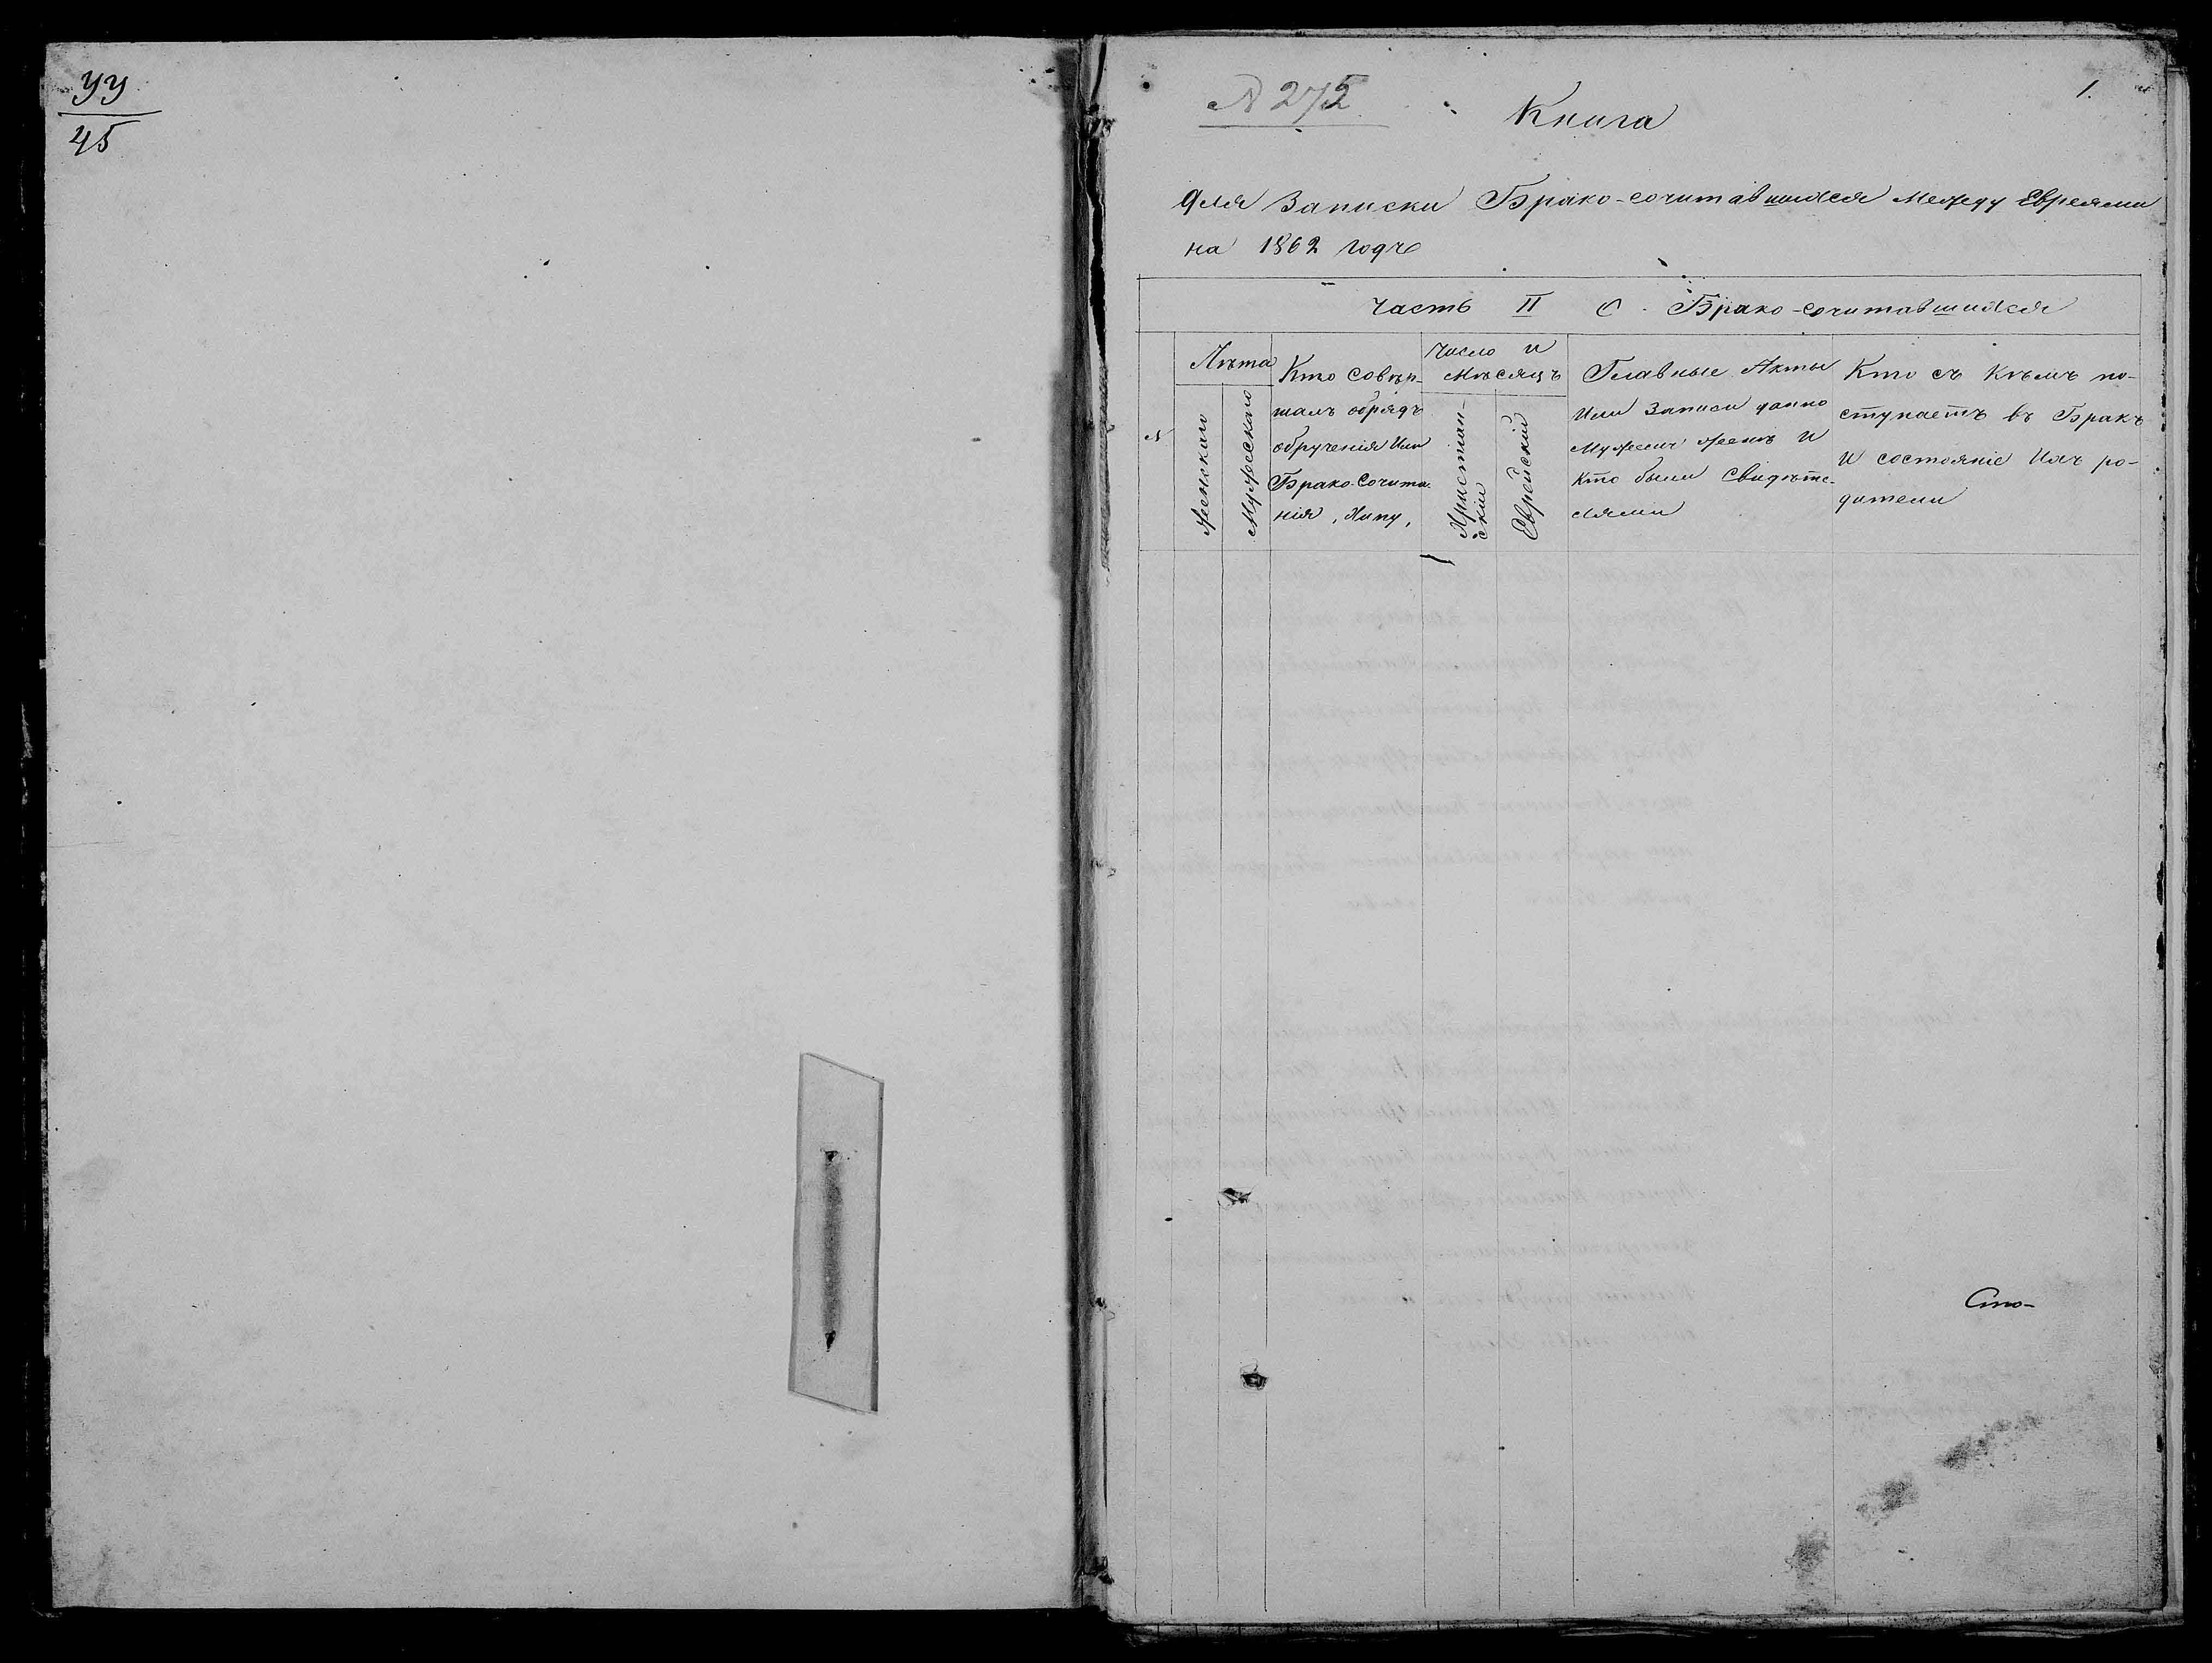 УУ
45
№ 275
1.
Книга
для Записки Брако-сочитавшихся между Евреями
на 1862 годъ
Часть II О Брако-сочитавшихся
№
Лѣта
Женскаго
Мужескаго
Кто совѣр-
шалъ обрядъ
обрученія Или
Брако-Сочита-
нія, Хипу,
Число и
Мѣсяцъ
Христіан-
скій
Еврейскій
Главные Акты
Или Записи данно
Мужемъ женѣ и
Кто были Свидѣте-
лями
Кто съ Кѣмъ по-
ступаетъ въ Бракъ
И состояніе Ихъ ро-
дители
Сто-